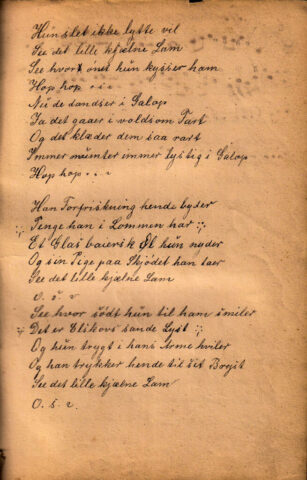 Hun slet ikke lytte vil
See det lille kjælne Lam
See hvor ømt hun kysser ham
Hop hop . . .
Nu de dandser i Galop
Ja det gaaer i voldsom Fart
Og det klæder dem saa rart
Immer munter immer lystig i Galop
Hop hop . . .
Han Forfriskning hende byder
Penge han i Lommen har :,:
Et Glas baiersk Øl hun nyder
Og sin Pige paa Skjödet han taer
See det lille kjælne Lam
O. s. v
See hvor södt hun til ham smiler
Det er Blikovs sande Lyst :,:
Og hun trygt i hans Arme hviler
Og han trykker hende til sit Bryst
See det lille kjælne Lam
O. s. v.